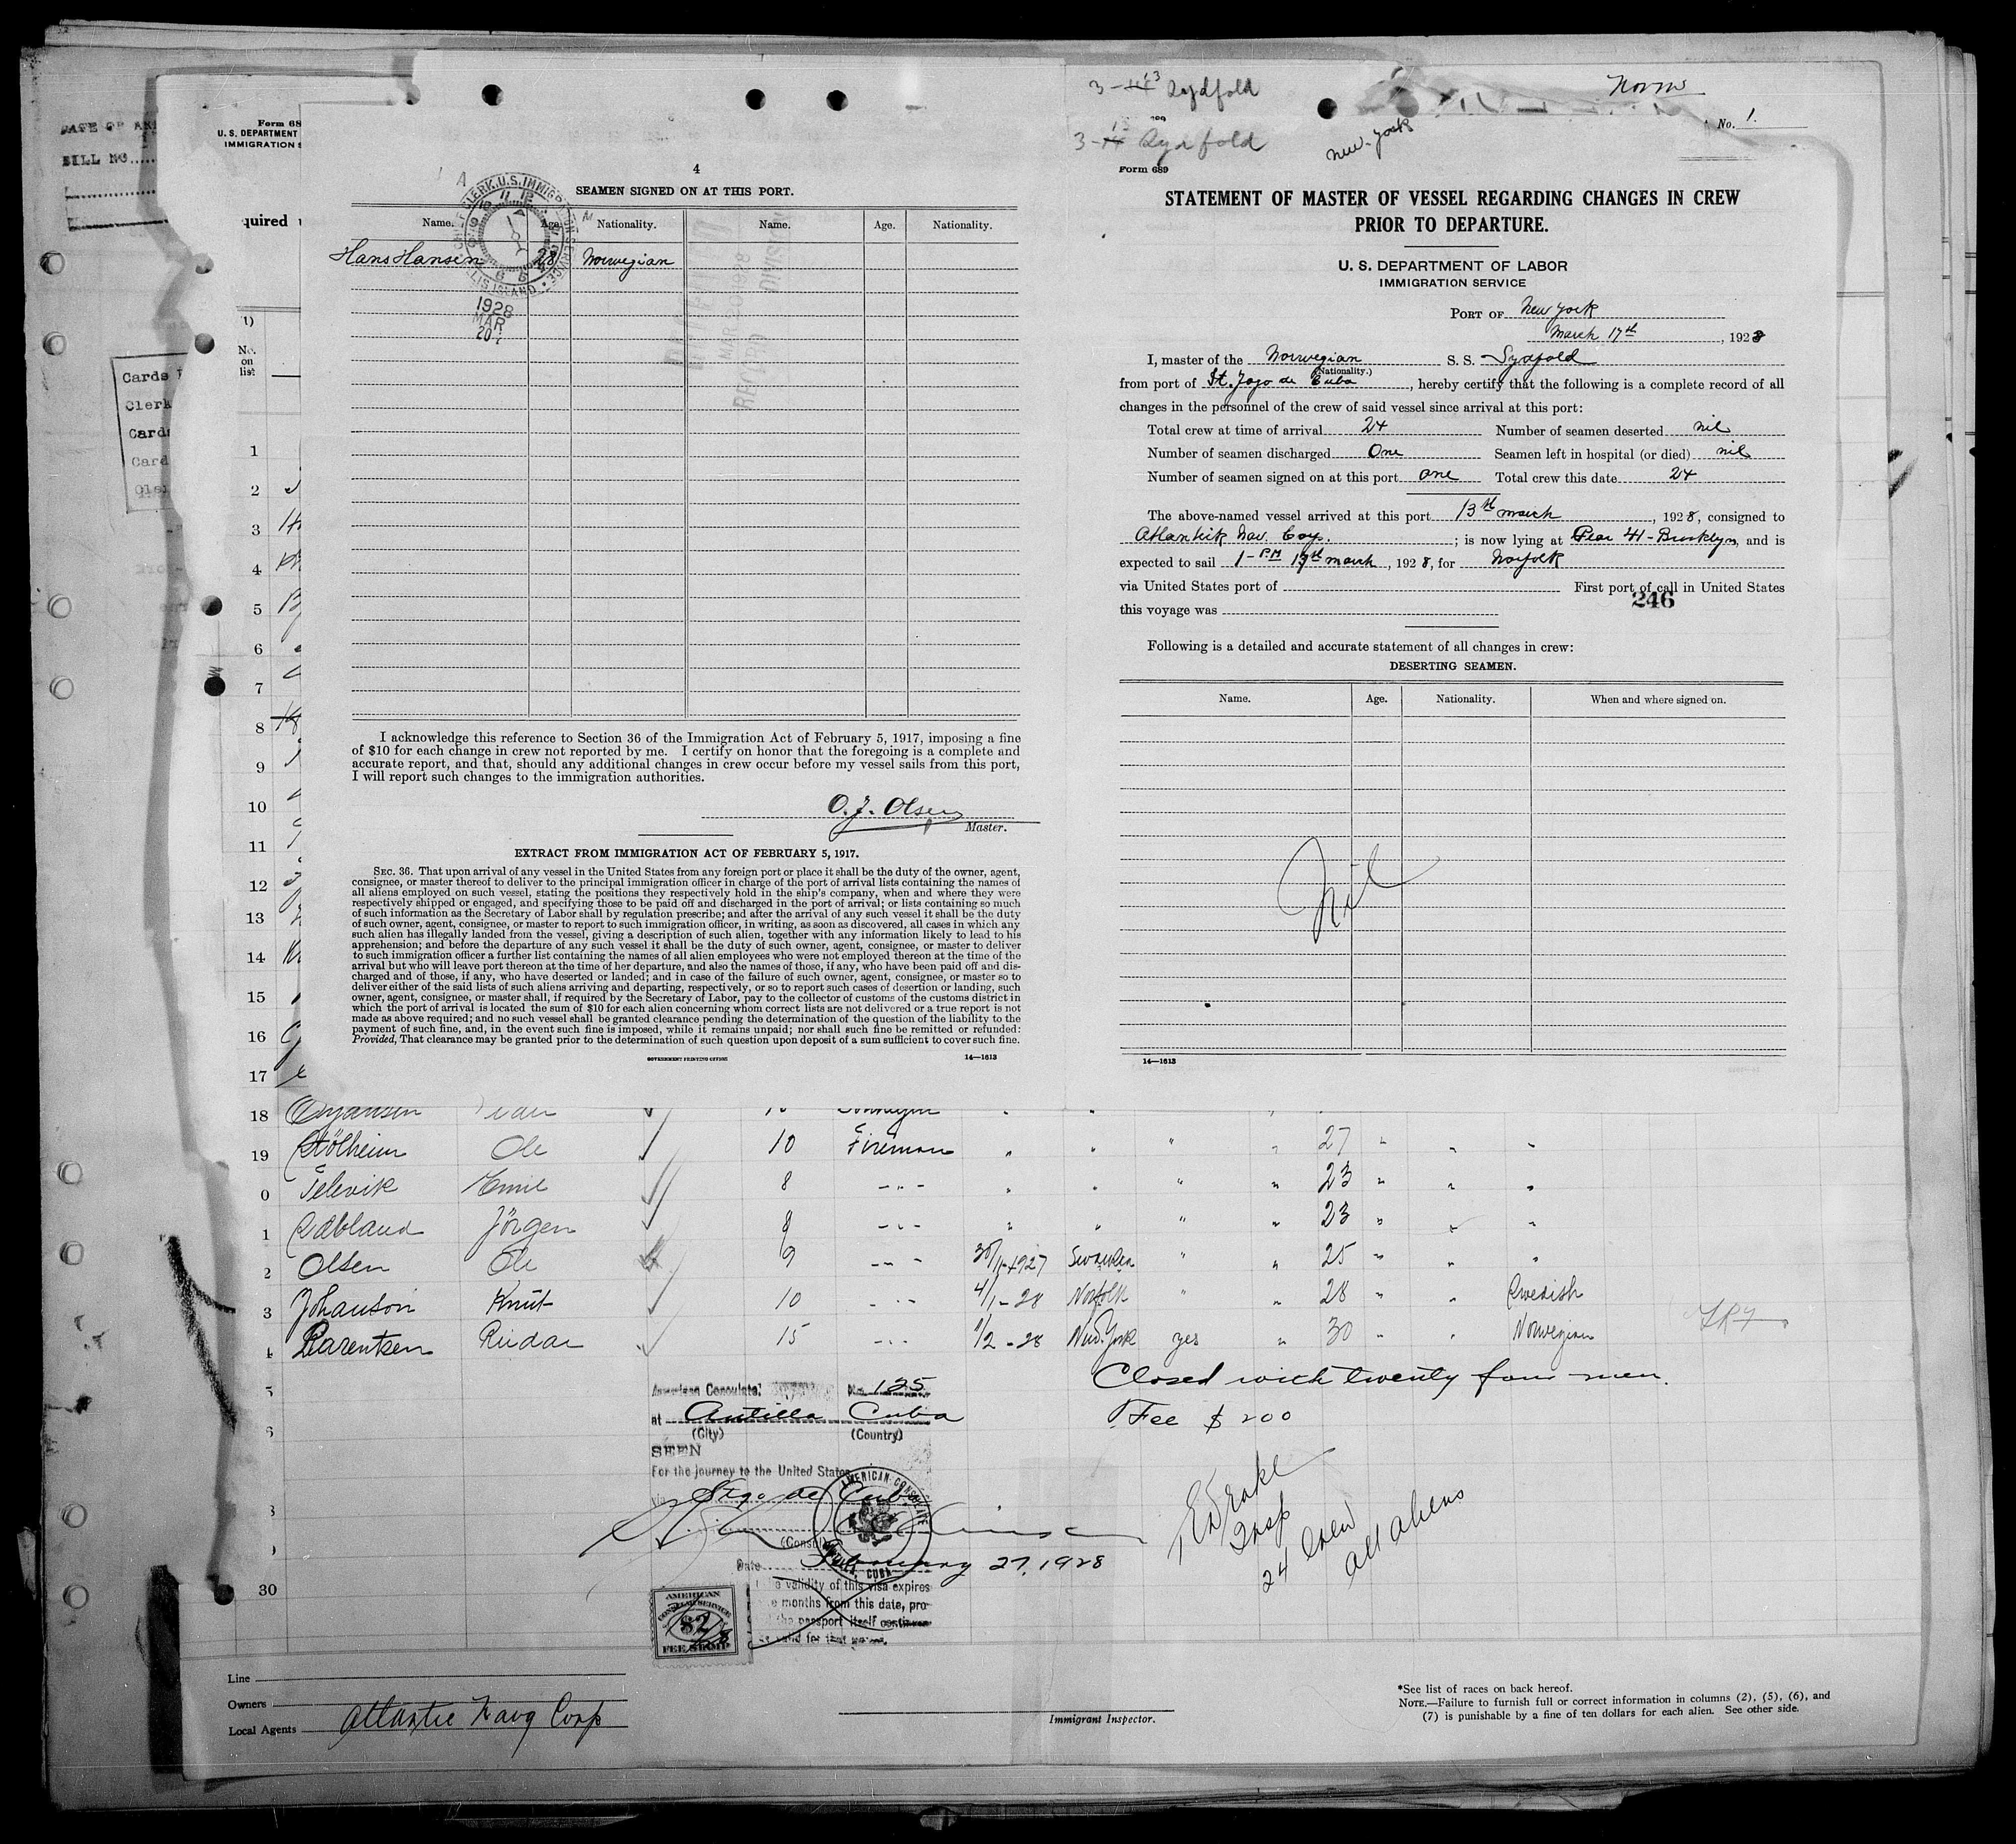 DATE OF
BILL NO.
Form 68
U. S. DEPARTMENT
IMMIGRATION S
quired
No.
on
list
Cards
Clerk
Cards
Card
4
SEAMEN SIGNED ON AT THIS PORT.
Name. Age. Nationality. Name. Age. Nationality.
Hans Hansen 28 Norwegian
CLERK, U.S. IMMIGRATION SERVICE
ELLIS ISLAND
1928
MAR
20
MAR 20 1928
I acknowledge this reference to Section 36 of the Immigration Act of February 5, 1917, imposing a fine
of $10 for each change in crew not reported by me. I certify on honor that the foregoing is a complete and
accurate report, and that, should any additional changes in crew occur before my vessel sails from this port,
I will report such changes to the immigration authorities.
O. J. Olsen
Master.
EXTRACT FROM IMMIGRATION ACT OF FEBRUARY 5, 1917.
SEC. 36. That upon arrival of any vessel in the United States from any foreign port or place it shall be the duty of the owner, agent,
consignee, or master thereof to deliver to the principal immigration officer in charge of the port of arrival lists containing the names of
all aliens employed on such vessel, stating the positions they respectively hold in the ship's company, when and where they were
respectively shipped or engaged, and specifying those to be paid off and discharged in the port of arrival; or lists containing so much
of such information as the Secretary of Labor shall by regulation prescribe; and after the arrival of any such vessel it shall be the duty
of such owner, agent, consignee, or master to report to such immigration officer, in writing, as soon as discovered, all cases in which any
such alien has illegally landed from the vessel, giving a description of such alien, together with any information likely to lead to his
apprehension; and before the departure of any such vessel it shall be the duty of such owner, agent, consignee, or master to deliver
to such immigration officer a further list containing the names of all alien employees who were not employed thereon at the time of the
arrival but who will leave port thereon at the time of her departure, and also the names of those, if any, who have been paid off and dis-
charged and of those, if any, who have deserted or landed; and in case of the failure of such owner, agent, consignee, or master so to
deliver either of the said lists of such aliens arriving and departing, respectively, or so to report such cases of desertion or landing, such
owner, agent, consignee, or master shall, if required by the Secretary of Labor, pay to the collector of customs of the customs district in
which the port of arrival is located the sum of $10 for each alien concerning whom correct lists are not delivered or a true report is not
made as above required; and no such vessel shall be granted clearance pending the determination of the question of the liability to the
payment of such fine, and, in the event such fine is imposed, while it remains unpaid; nor shall such fine be remitted or refunded:
Provided, That clearance may be granted prior to the determination of such question upon deposit of a sum sufficient to cover such fine.
GOVERNMENT PRINTING OFFICE 14—1613
3-13 Sydfold
3- Sydfold
New-York
No. 1.
Form 689
STATEMENT OF MASTER OF VESSEL REGARDING CHANGES IN CREW
PRIOR TO DEPARTURE.
U. S. DEPARTMENT OF LABOR
IMMIGRATION SERVICE
PORT OF New York
March 17th, 1928
I, master of the Norwegian S. S. Sydfold
(Nationality.)
from port of St. Jago de Cuba, hereby certify that the following is a complete record of all
changes in the personnel of the crew of said vessel since arrival at this port:
Total crew at time of arrival 24 Number of seamen deserted nil
Number of seamen discharged One Seamen left in hospital (or died) nil
Number of seamen signed on at this port one Total crew this date 24
The above-named vessel arrived at this port 13th march, 1928, consigned to
Atlantik Nav. Coy.; is now lying at Pear 41-Brooklyn, and is
expected to sail 1-PM 17th march, 1928, for Norfolk
via United States port of First port of call in United States
246
this voyage was
Following is a detailed and accurate statement of all changes in crew:
DESERTING SEAMEN.
Name. Age. Nationality. When and where signed on.
Nil
14—1613
1
2
3
4
5
6
7
8
9
10
11
12
13
14
15
16
17
18
19 Stölheim Ole 10 Fireman " " " " 27 " " "
0 Televik Emil 8 -"- " " " " 23 " " "
1 Ådland Jörgen 8 -"- " " " " 23 " " "
2 Olsen Ole 9 -"- 30/11-1927 Swansea " " 25 " " "
3 Johanson Knut 10 -"- 4/1-28 Norfolk " " 28 " " Swedish
4 Barentsen Reidar 15 -"- 1/2-28 New.York yes " 30 " " Norwegian
Closed with twenty four men.
Fee $ 200
American Consulate No. 125
at Antilla Cuba
(City) (Country)
SEEN
For the journey to the United States
via Stgo de Cuba
AMERICAN CONSULATE
CUBA
(Consul)
Date February 27, 1928
The validity of this visa expires
months from this date, pro-
the passport itself continues
valid for that
AMERICAN
CONSULAR SERVICE
$2
FEE STAMP
Drake
Insp
24 Crew
all aliens
30
Line
Owners
Local Agents Atlantic Navg Corp
Immigrant Inspector.
*See list of races on back hereof.
NOTE.—Failure to furnish full or correct information in columns (2), (5), (6), and
(7) is punishable by a fine of ten dollars for each alien. See other side.